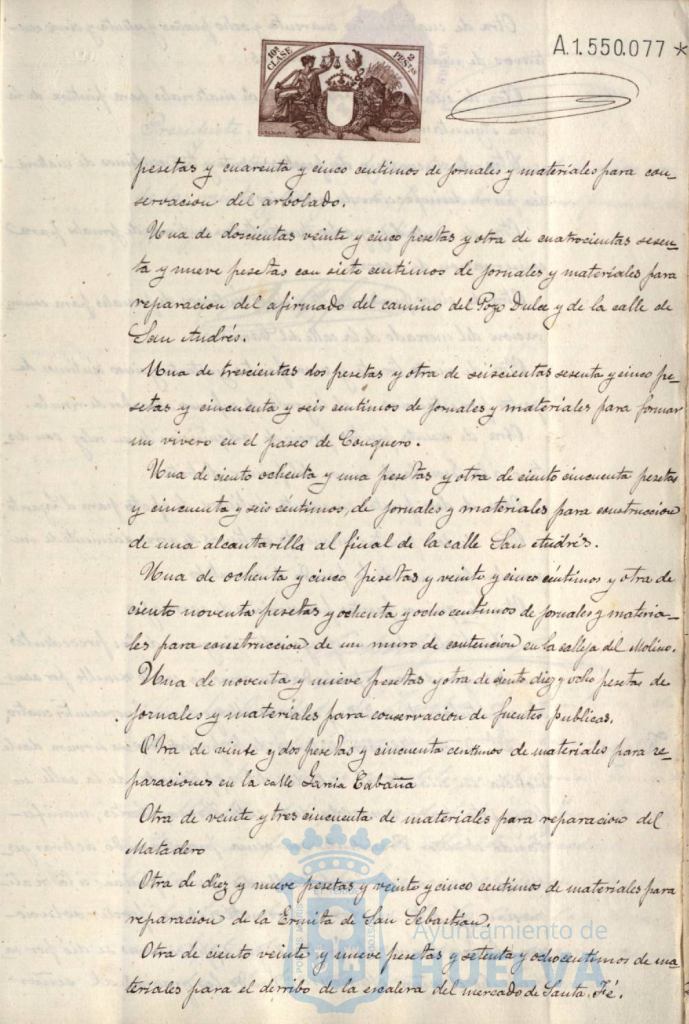 A.1.550.077 *
10ª CLASE 2 PESETAS
pesetas y cuarenta y cinco centimos de jornales y materiales para con-
servacion del arbolado.
Una de doscientas veinte y cinco pesetas y otra de cuatrocientas sesen-
ta y nueve pesetas con siete centimos de jornales y materiales para
reparacion del afirmado del camino del Pozo Dulce y de la calle de
San Andrés.
Una de trescientas dos pesetas y otra de seiscientas sesenta y cinco pe-
setas y cincuenta y seis centimos de jornales y materiales para formar
un vivero en el paseo de Conquero.
Una de ciento ochenta y una pesetas y otra de ciento cincuenta pesetas
y cincuenta y seis centimos, de jornales y materiales para construccion
de una alcantarilla al final de la calle San Andrés.
Una de ochenta y cinco pesetas y veinte y cinco céntimos y otra de
ciento noventa pesetas y ochenta y ocho centimos de jornales y materia-
les para construccion de un muro de contencion en la calleja del Molino.
Una de noventa y nueve pesetas y otra de ciento diez y ocho pesetas de
jornales y materiales para conservacion de fuentes publicas.
Otra de veinte y dos pesetas y cincuenta centimos de materiales para re-
paraciones en la calle Garcia Cabaña
Otra de veinte y tres cincuenta de materiales para reparacion del
Matadero
Otra de diez y nueve pesetas y veinte y cinco centimos de materiales para
reparacion de la Ermita de San Sebastian.
Otra de ciento veinte y nueve pesetas y setenta y ocho centimos de ma-
teriales para el derribo de la escalera del mercado de Santa Fé.
Ayuntamiento de
HUELVA